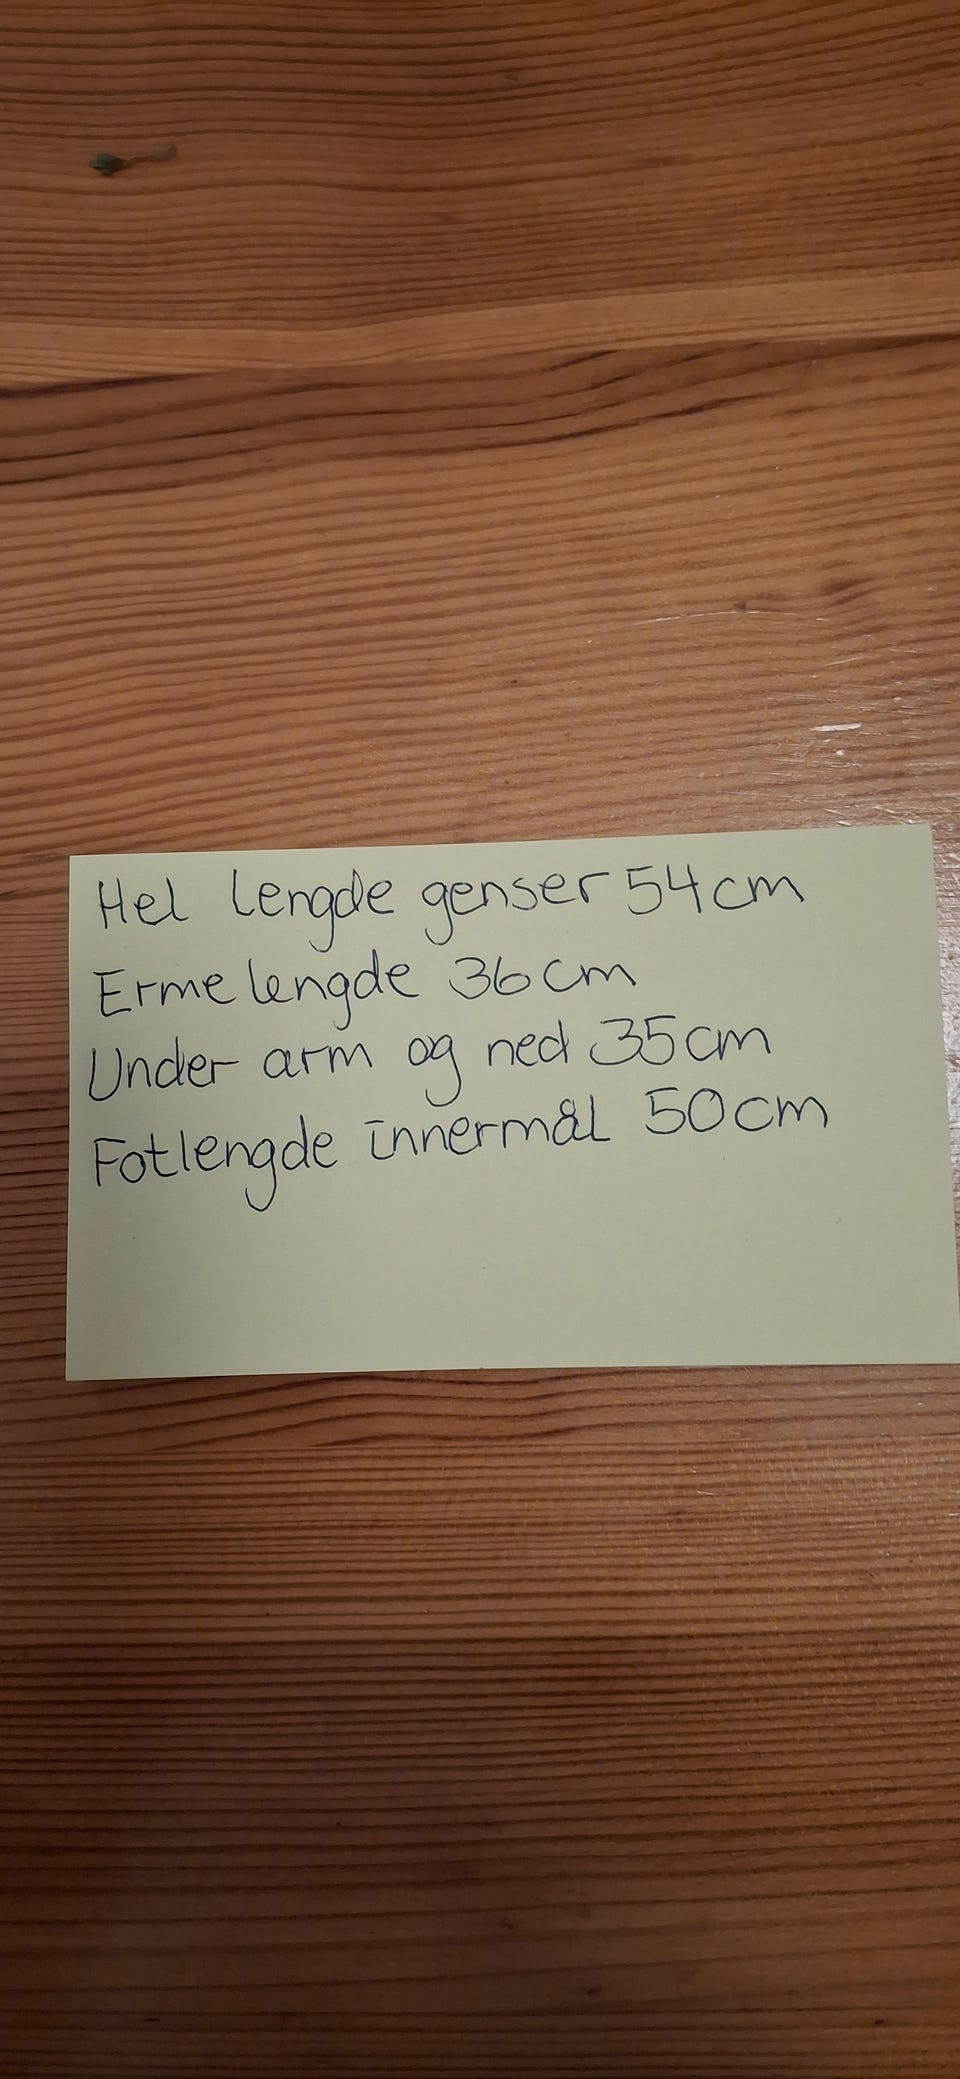 Hel lengde genser 54cm
Erme lengde 36cm
Under arm og ned 35cm
Fotlengde innermål 50cm